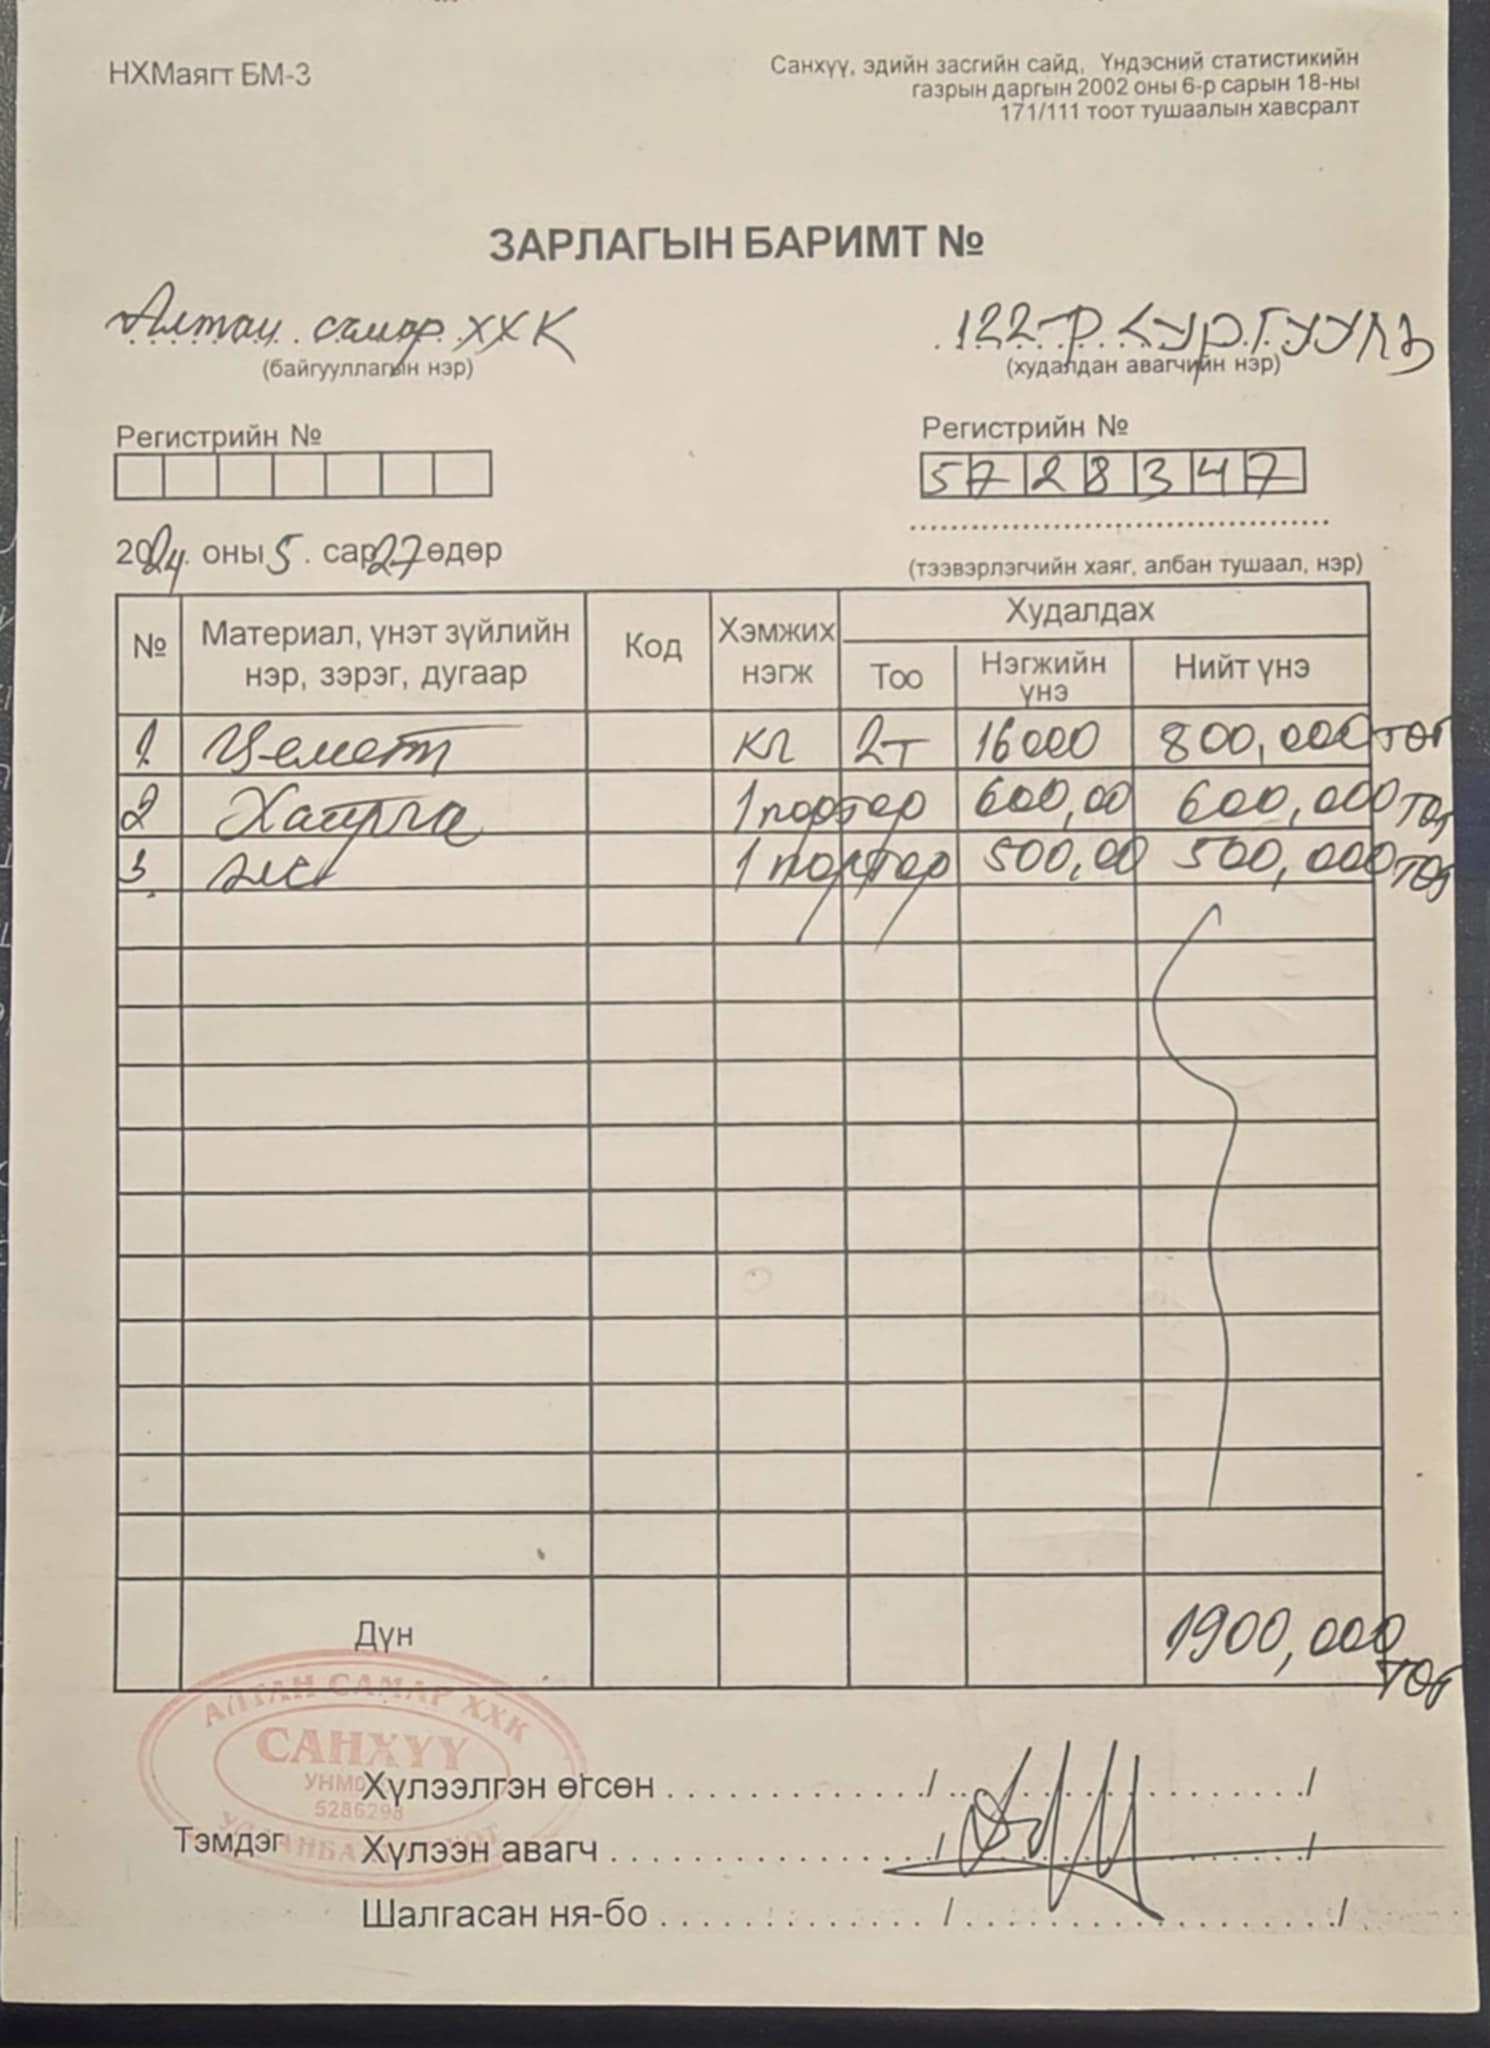 НХМаягт БМ-3
Санхүү, эдийн засгийн сайд, Үндэсний статистикийн
газрын даргын 2002 оны 6-р сарын 18-ны
171/111 тоот тушаалын хавсралт
ЗАРЛАГЫН БАРИМТ №
Алтан самар ХХК
(байгууллагын нэр)
122-р сургууль
(худалдан авагчийн нэр)
Регистрийн №
Регистрийн №
5728347
2024. оны 5. сар 27 өдөр
(тээвэрлэгчийн хаяг, албан тушаал, нэр)
№ Материал, үнэт зүйлийн нэр, зэрэг, дугаар Код Хэмжих нэгж Худалдах
Тоо Нэгжийн үнэ Нийт үнэ
1. Цемент кг 2т 16000 800,000төг
2 Хайрга 1 портер 600,00 600,000төг
3. элс 1 портер 500,00 500,000төг
Дүн 1900,000
төг
АЛТАН САМАР ХХК
САНХҮҮ
5286298
Хүлээлгэн өгсөн / /
Тэмдэг
Хүлээн авагч / /
Шалгасан ня-бо / /